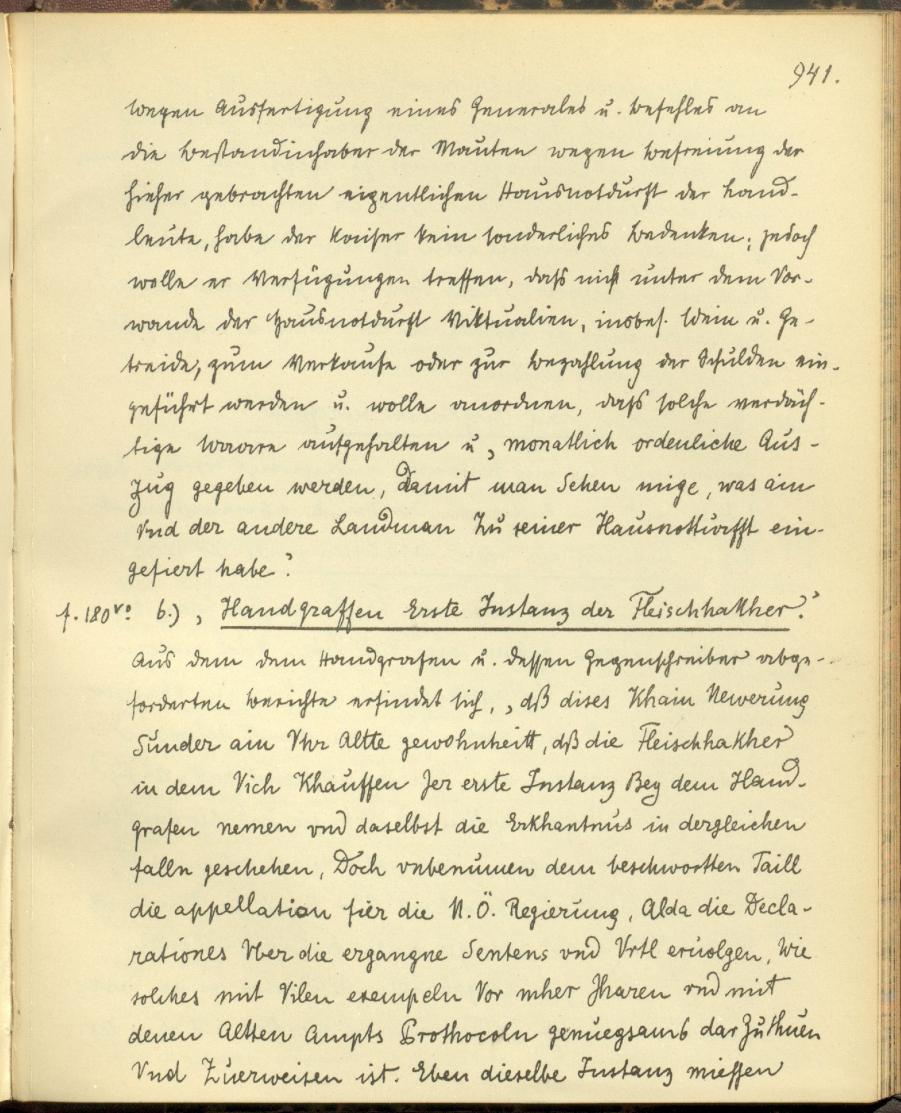 941.
wegen Ausfertigung eines Generales u. Befehles an
die Bestandinhaber der Mauten wegen Befreiung der
hieher gebrachten eigentlichen Hausnotdurft der Land-
leute, habe der Kaiser kein sonderliches Bedenken; jedoch
wolle er Verfügungen treffen, daß nicht unter dem Vor-
wande der Hausnotdurft Viktualien, insbes. Wein u. Ge-
treide, zum Verkaufe oder zur Bezahlung der Schulden ein-
geführt werden u. wolle anordnen, daß solche verdäch-
tige Waare aufgehalten u. „monatlich ordenliche Aus-
zug gegeben werden, Damit man Sehen mige, was ain
Vnd der andere Landman Zu seiner Hausnotturfft ein-
gefiert habe“.
f. 180vo. 6.) „Handgraffen Erste Instanz der Fleischhakher“.
Aus dem dem Handgrafen u. dessen Gegenschreiber abge-
forderten Berichte erfindet sich, „dß dises Khain Newerung
Sunder ain Vhr Altte gewohnheitt, dß die Fleischhakher
in dem Vich Khauffen Jer erste Instanz Bey dem Hand-
grafen nemen vnd daselbst die Erkhantnus in dergleichen
falln geschehen, Doch vnbenumen dem beschwortten Taill
die appellation fier die N.Ö. Regierung, Alda die Decla-
rationes Vber die ergangne Sentens vnd Vrtl eruolgen, Wie
solches mit Vilen exempeln Vor mher Jharen vnd mit
denen Altten Ampts Prothocoln genuegsamb darZuthuen
Vnd Zuerweisen ist. Eben dieselbe Instanz miessen